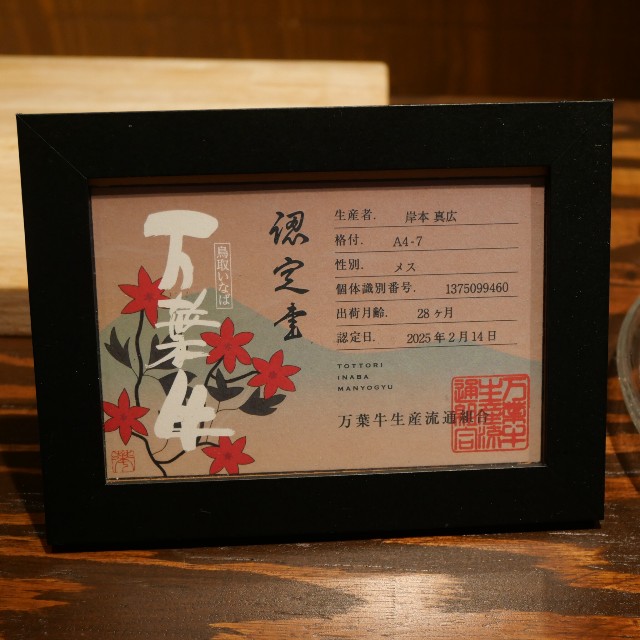 鳥取いなば
万葉牛
認定書
生産者. 岸本 真広
格付. A4-7
性別. メス
個体識別番号. 1375099460
出荷月齢. 28ヶ月
認定日. 2025年2月14日
TOTTORI
INABA
MANYOGYU
万葉牛生産流通組合